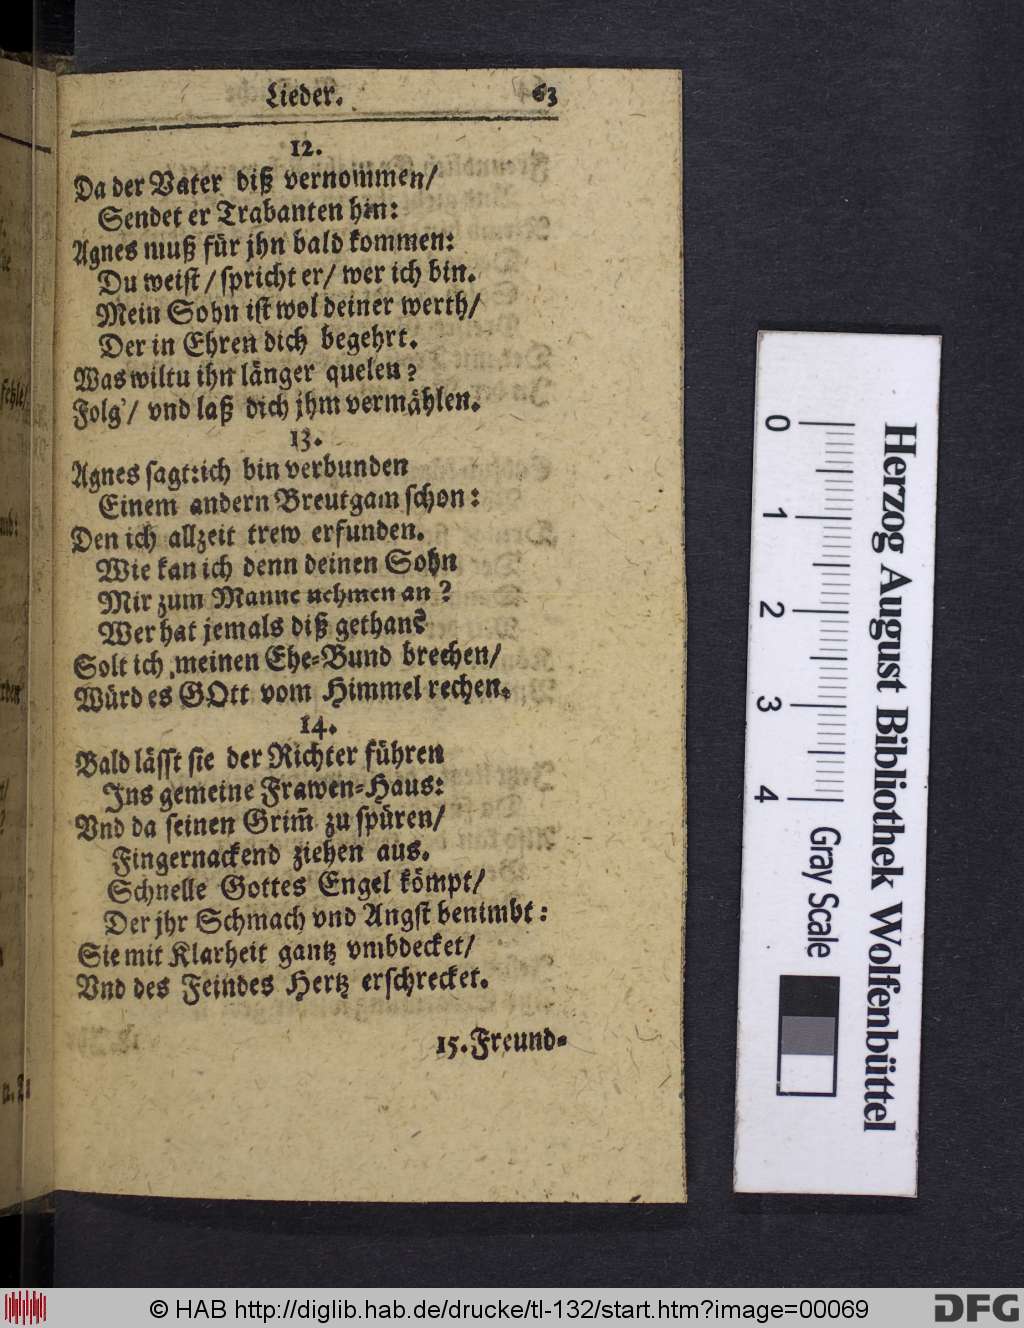 Lieder. 63
12.
Da der Vater diß vernommen/
Sendet er Trabanten hin:
Agnes muß für jhn bald kommen:
Du weist/ spricht er/ wer ich bin.
Mein Sohn ist wol deiner werth/
Der in Ehren dich begehrt.
Was wiltu ihn länger quelen?
Folg'/ vnd laß dich jhm vermählen.
13.
Agnes sagt: ich bin verbunden
Einem andern Breutgam schon:
Den ich allzeit trew erfunden.
Wie kan ich denn deinen Sohn
Mir zum Manne nehmen an?
Wer hat jemals diß gethan?
Solt ich meinen Ehe-Bund brechen/
Würd es GOtt vom Himmel rechen.
14.
Bald lässt sie der Richter führen
Ins gemeine Frawen-Haus:
Vnd da seinen Grim̃ zu spüren/
Fingernackend ziehen aus.
Schnelle Gottes Engel kömpt/
Der jhr Schmach vnd Angst benimbt:
Sie mit Klarheit gantz vmbdecket/
Vnd des Feindes Hertz erschrecket.
15. Freund-
0 1 2 3 4 Gray Scale
Herzog August Bibliothek Wolfenbüttel
© HAB http://diglib.hab.de/drucke/tl-132/start.htm?image=00069
DFG